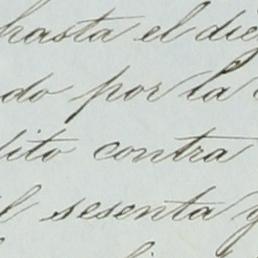 hasta el die
do por la
dito contra
sesenta y